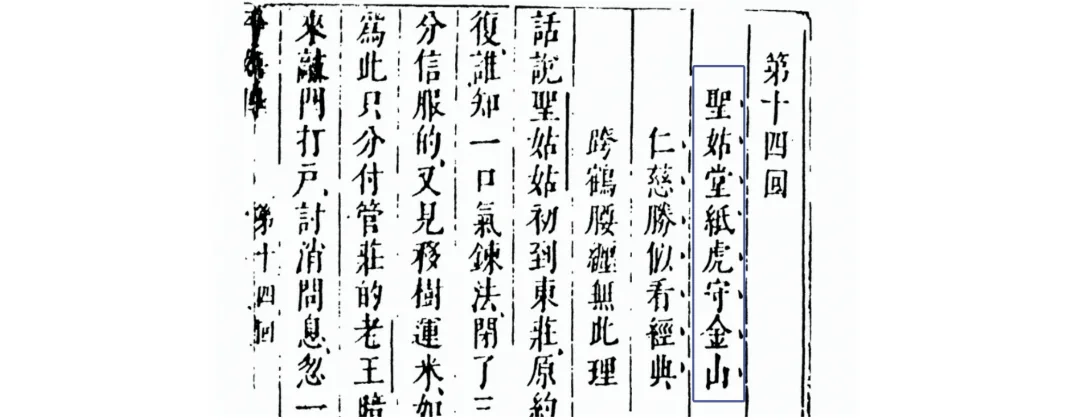 第十四囘
聖姑堂紙虎守金山
仁慈勝似看經典
跨鶴腰纏無此理
話說聖姑姑初到東莊原約
復誰知一口氣鍊法閉了三
分信服的又見移樹運米如
爲此只分付管莊的老王暗
來敲門打戸討消問息忽一
第十四囘